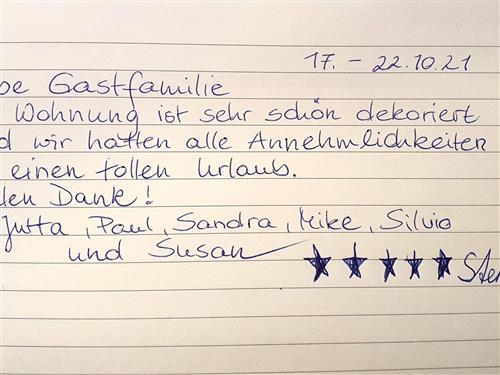 17. - 22.10.21
be Gastfamilie
Wohnung ist sehr schön dekoriert
d wir hatten alle Annehmlichkeiten
einen tollen Urlaub.
len Dank!
Jutta, Paul, Sandra, Mike, Silvio
und Susan
★★★★★ Ster